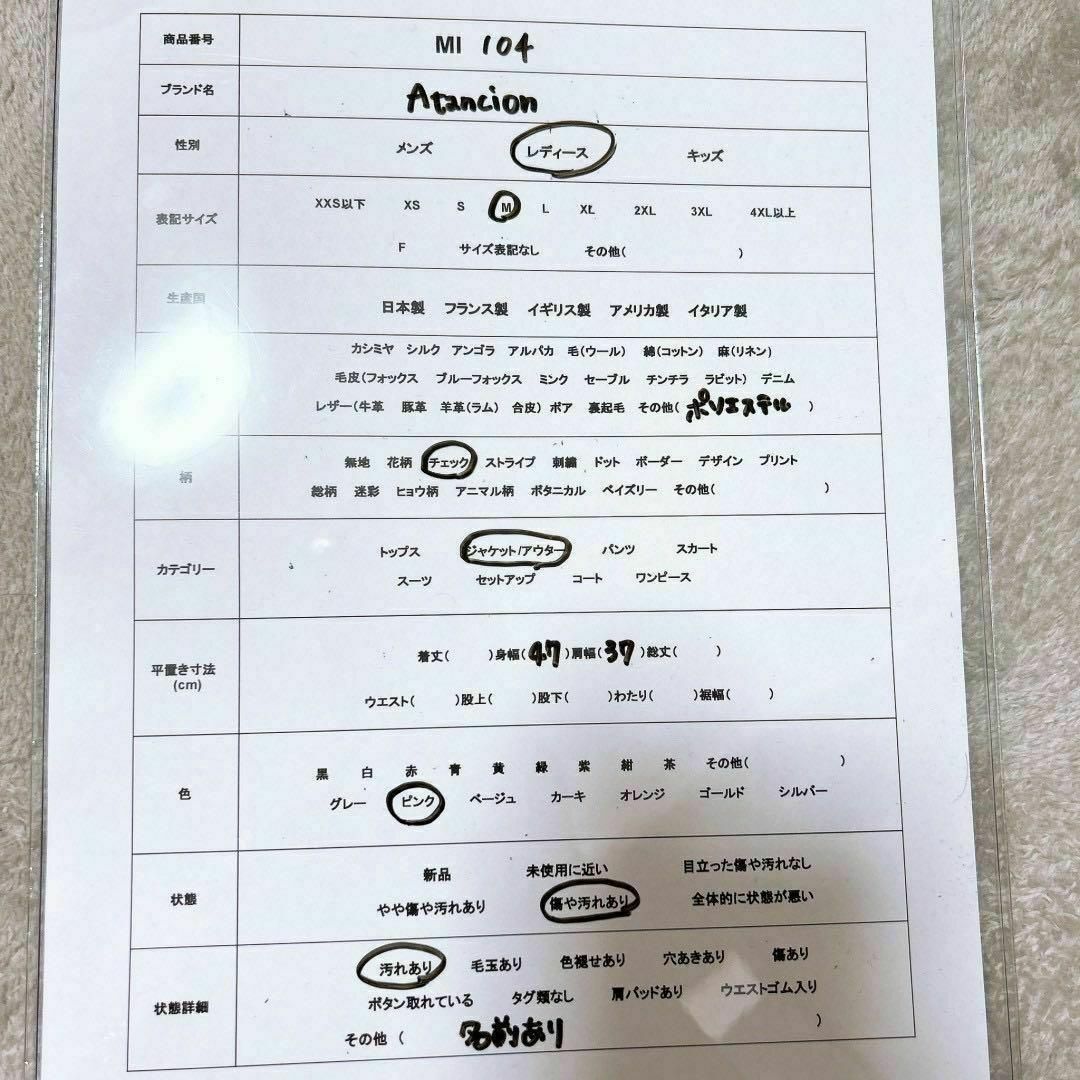 商品番号 MI 104
ブランド名 Atancion
性別 メンズ レディース キッズ
表記サイズ XXS以下 XS S M L XL 2XL 3XL 4XL以上
F サイズ表記なし その他( )
生産国 日本製 フランス製 イギリス製 アメリカ製 イタリア製
カシミヤ シルク アンゴラ アルパカ 毛(ウール) 綿(コットン) 麻(リネン)
毛皮(フォックス ブルーフォックス ミンク セーブル チンチラ ラビット) デニム
レザー(牛革 豚革 羊革(ラム) 合皮) ボア 裏起毛 その他( ポリエステル )
柄 無地 花柄 チェック ストライプ 刺繍 ドット ボーダー デザイン プリント
総柄 迷彩 ヒョウ柄 アニマル柄 ボタニカル ペイズリー その他( )
カテゴリー トップス ジャケット/アウター パンツ スカート
スーツ セットアップ コート ワンピース
平置き寸法 着丈( )身幅( 47 )肩幅( 37 )総丈( )
(cm) ウエスト( )股上( )股下( )わたり( )裾幅( )
色 黒 白 赤 青 黄 緑 紫 紺 茶 その他( )
グレー ピンク ベージュ カーキ オレンジ ゴールド シルバー
状態 新品 未使用に近い 目立った傷や汚れなし
やや傷や汚れあり 傷や汚れあり 全体的に状態が悪い
状態詳細 汚れあり 毛玉あり 色褪せあり 穴あきあり 傷あり
ボタン取れている タグ類なし 肩パッドあり ウエストゴム入り
その他 ( 名前あり )